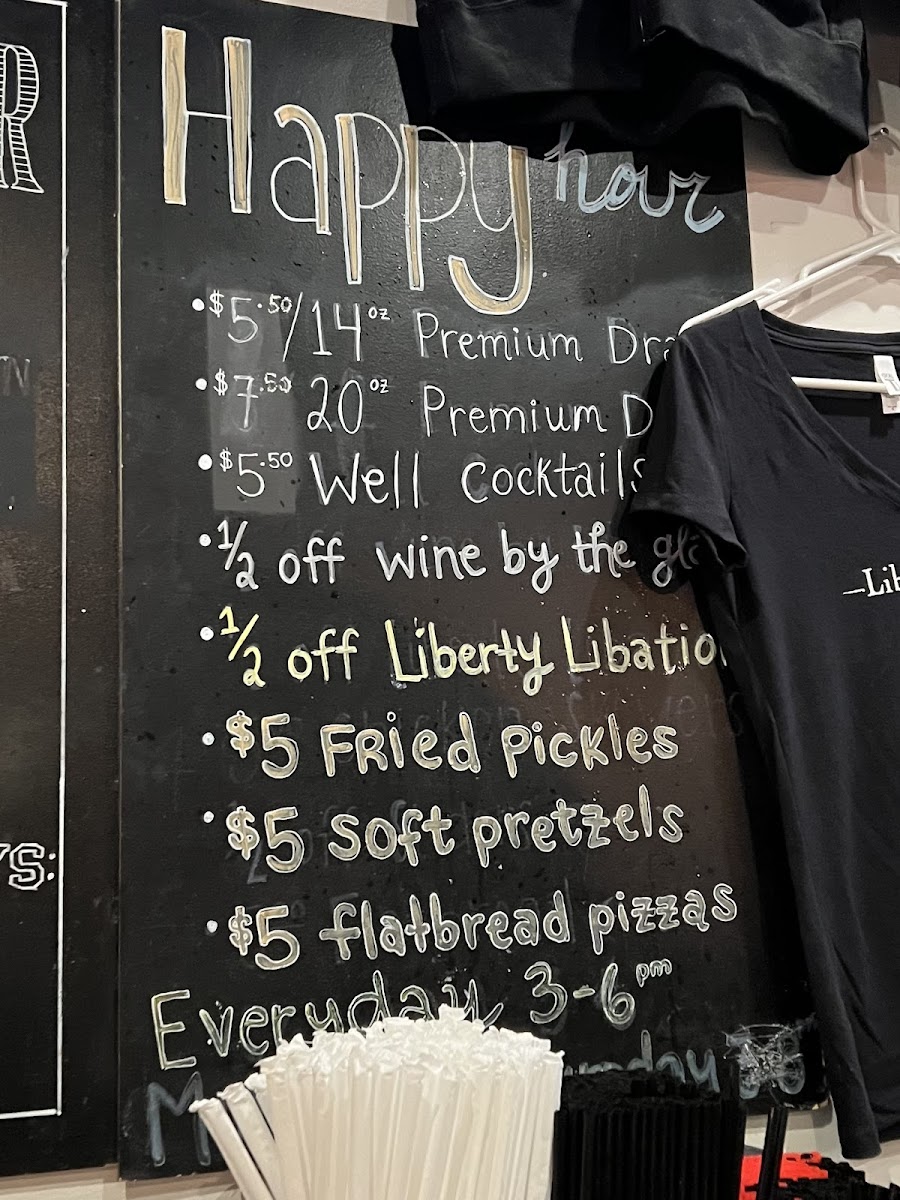 Happy hour
• $5.50/14oz Premium
• $7.50 20oz Premium
• $5.50 Well Cocktails
• 1/2 off wine by the
• 1/2 off Liberty
• $5 FRied Pickles
• $5 soft pretzels
• $5 flatbread pizzas
Everyday 3-6pm